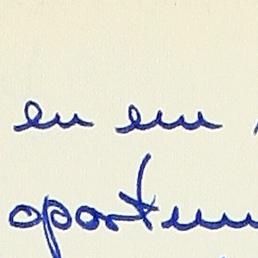 en em
oportun